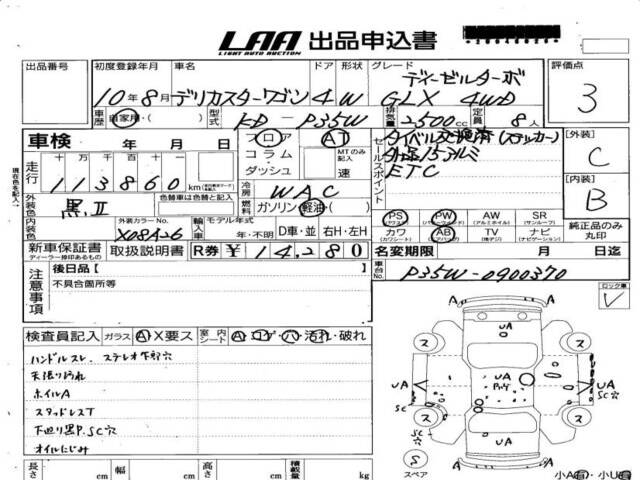 LAA 出品申込書
LIGHT AUTO AUCTION
出品番号 初度登録年月 車名 ドア 形状 グレード 評価点
ディーゼルターボ
10年8月 デリカスターワゴン 4 W GLX 4WD 3
車歴 自家用・( ) 型式 KD - P35W 排気量 2,500cc 定員 8人
車検 年 月 日 フロア AT
コラム・ダッシュ MTのみ記入 速
走行 十万千百十一
113860km
セールスポイント
タイベル交換済(ステッカー)
外品15アルミ
ETC
[外装] C
[内装] B
冷房 WAC
外装色 黒.II 色替車は色替と記入
燃料 ガソリン・軽油・( )
内装色 外装カラーNo. X08A26
輸入車 モデル年式 年・不明 D車・並 右H・左H
PS PW AW SR
(パワステ) (パワーウィンドウ) (アルミホイル) (サンルーフ)
カワ AB TV ナビ
(カワシート) (エアバッグ) (地デジ) (ナビゲーション)
純正品のみ丸印
新車保証書 取扱説明書 R券 ¥14,280
ディーラー捺印あるもの
名変期限 月 日迄
車台No. P35W-0900370
注意事項 後日品[ ]
不具合箇所等
ロック車
検査員記入 ガラス A・X要ス 室内 シート A・コゲ・ハ・汚れ・破れ
ハンドルスレ. ステレオ下部穴
天張り汚れ
ホイルA
スタッドレスT
下廻り黒P.SC穴
オイルにじみ
A A
UA
ス ス
UA UA PaY UA
SC☆ SC☆
ス ス
SC☆ UA
A A
S
スペア
長さ cm 幅 cm 高さ cm 積載量 kg
小A有・小U有
現在色を記入.